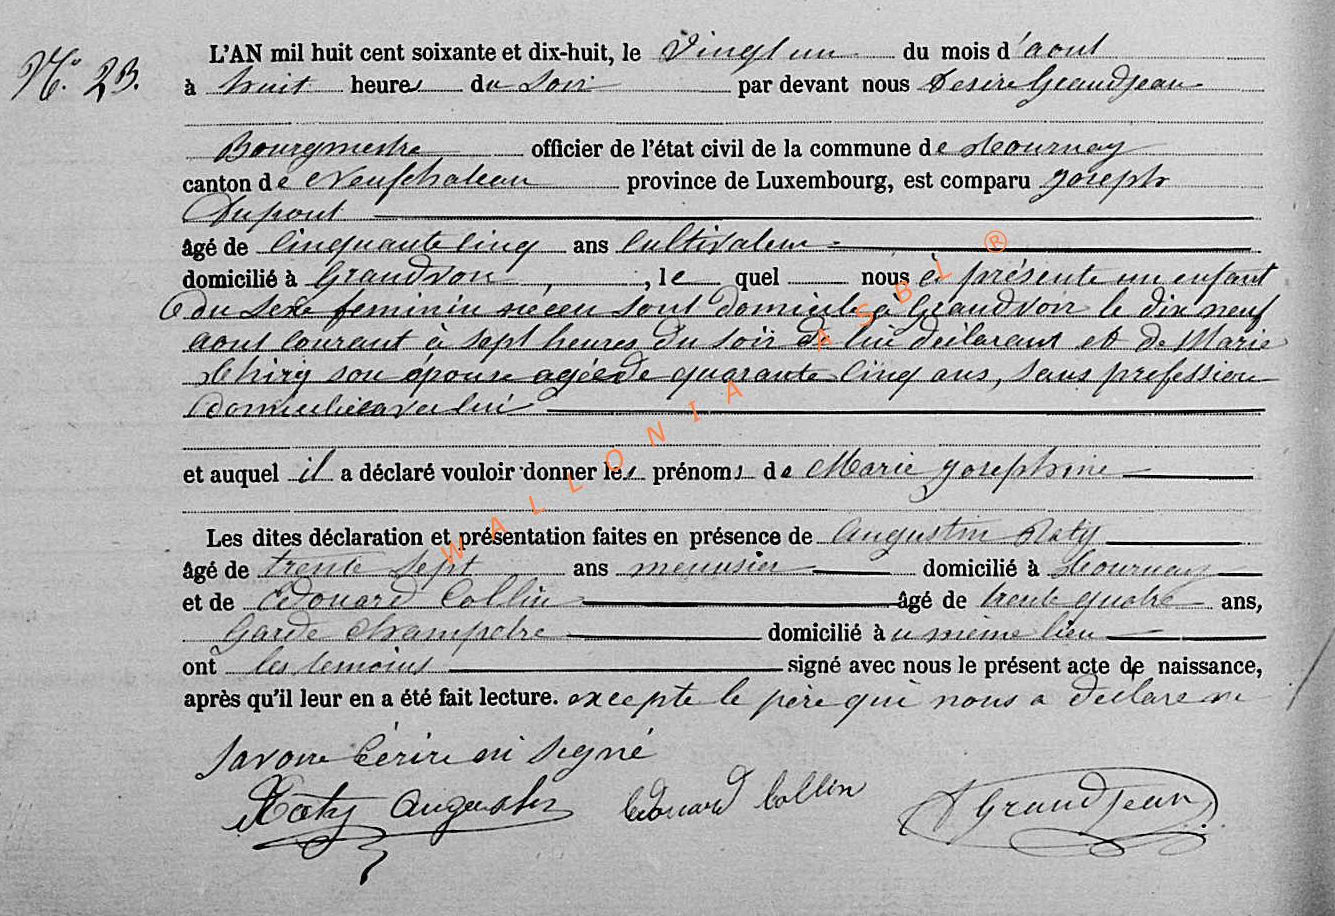 No. 23.
L'AN mil huit cent soixante et dix-huit, le vingt un du mois d'aout
à huit heures du soir par devant nous Desiré Grandjean
Bourgmestre officier de l'état civil de la commune de Tournay
canton de Neufchateau province de Luxembourg, est comparu Joseph
Dupont
âgé de cinquante cinq ans Cultivateur
domicilié à Grandvoir, le quel nous à présenté un enfant
du sexe feminin né en sont domicile à Grandvoir le dix neuf
aout courant à sept heures du soir de lui déclarant et de Marie
Thiry son épouse agée de quarante cinq ans, sans profession
domiciliée avec lui
et auquel il a déclaré vouloir donner les prénoms de Marie Josephine
Les dites déclaration et présentation faites en présence de Augustin Raty
âgé de trente sept ans menusier domicilié à Tournay
et de Edouard Collin âgé de trente quatre ans,
Garde Champetre domicilié à u même lieu
ont les temoins signé avec nous le présent acte de naissance,
après qu'il leur en a été fait lecture. excepte le père qui nous a declare ne
savoir écrire ni signé
Raty Augustin Edouard Collin D Grandjean
WALLONIA ASBL ®